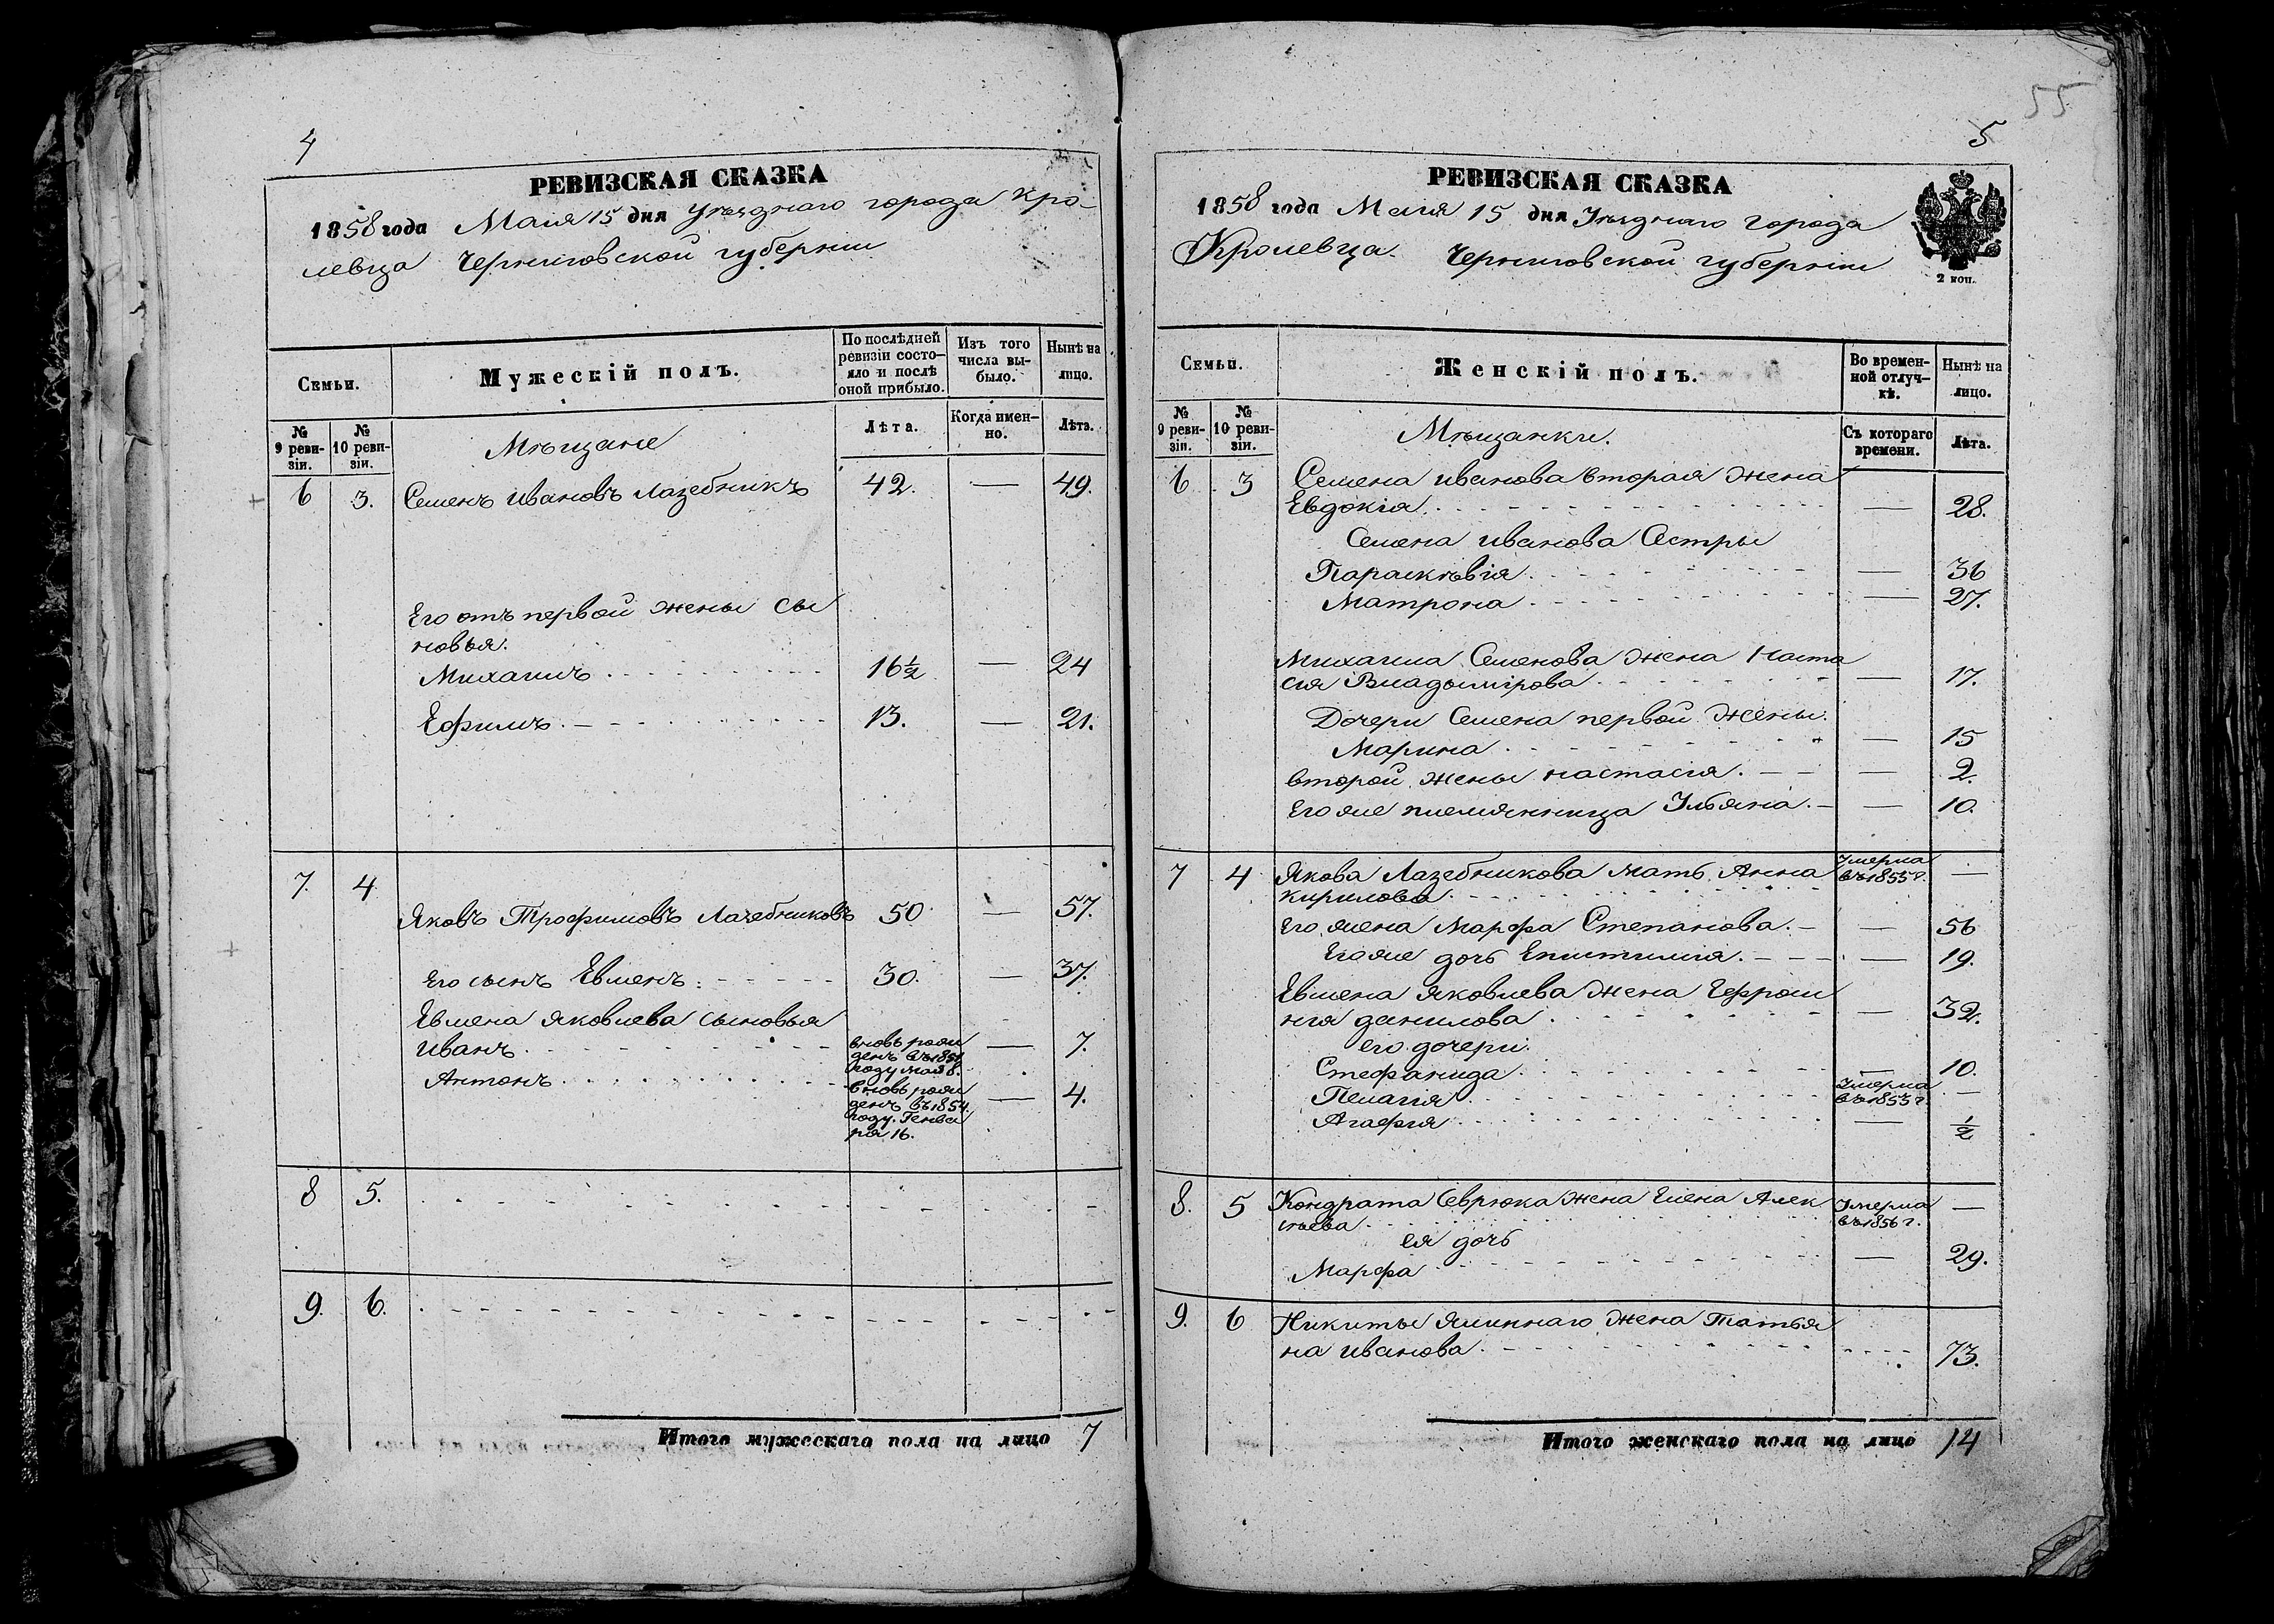 55
4
РЕВИЗСКАЯ СКАЗКА
1858 года Маія 15 дня Уѣзднаго города Кро-
левца Черниговской губерніи
Семьи.
Мужескій полъ.
По послѣдней ревизіи состо-яло и послѣ оной прибыло.
Изъ того числа вы-было.
Нынѣ на лицо.
№ 9 реви-зіи.
№ 10 реви-зіи.
Мѣщане
Лѣта.
Когда имен-но.
Лѣта.
6 3. Семенъ Ивановъ Лазебникъ 42. — 49.
Его отъ первой жены сы
новья.
Михаилъ 16½ — 24
Ефимъ. 13. — 21.
7. 4
Яковъ Трофимовъ Лазебниковъ 50 — 57.
Его сынъ Евменъ. 30. — 37.
Евмена Яковлева сыновья
Иванъ вновь рож денъ въ 1851 году мая 8. — 7.
Антонъ вновь рож денъ въ 1854. году. Генва ря 16. — 4.
8 5.
9. 6.
Итого мужескаго пола на лицо 7
5
РЕВИЗСКАЯ СКАЗКА
1858 года Маія 15 дня Уѣзднаго города
Кролевца. Черниговской губерніи
2 коп.
Семьи.
Женскій полъ.
Во времен-ной отлуч-кѣ.
Нынѣ на лицо.
№ 9 реви-зіи.
№ 10 реви-зіи.
Мѣщанки.
Съ котораго времени.
Лѣта.
6 3 Семена Иванова вторая жена
Евдокія. — 28.
Семена Иванова Сестры
Параскѣвія. — 36
Матрона — 27.
Михаила Семенова жена Наста
сия Владимірова — 17.
Дочери Семена первой жены.
Марина — 15
второй жены настасія. — 2.
Его же племянница Ульяна. — 10.
7 4 Якова Лазебникова мать Анна Умерла въ 1855 г. —
Кирилова
Его жена Марфа Степанова. — 56
Его же дочь Епистимия. — 19.
Евмена Яковлева жена Ефроси
нія данилова — 32.
его дочери.
Стефанида — 10.
Пелагия Умерла въ 1853 г. —
Агафия — ½
8. 5 Кондрата Севрюка жена Елена Алек Умерла въ 1856 г. —
сѣева
ея дочь
Марфа — 29.
9. 6 Никиты жена Татья
на Иванова 73.
Итого женскаго пола на лицо 14